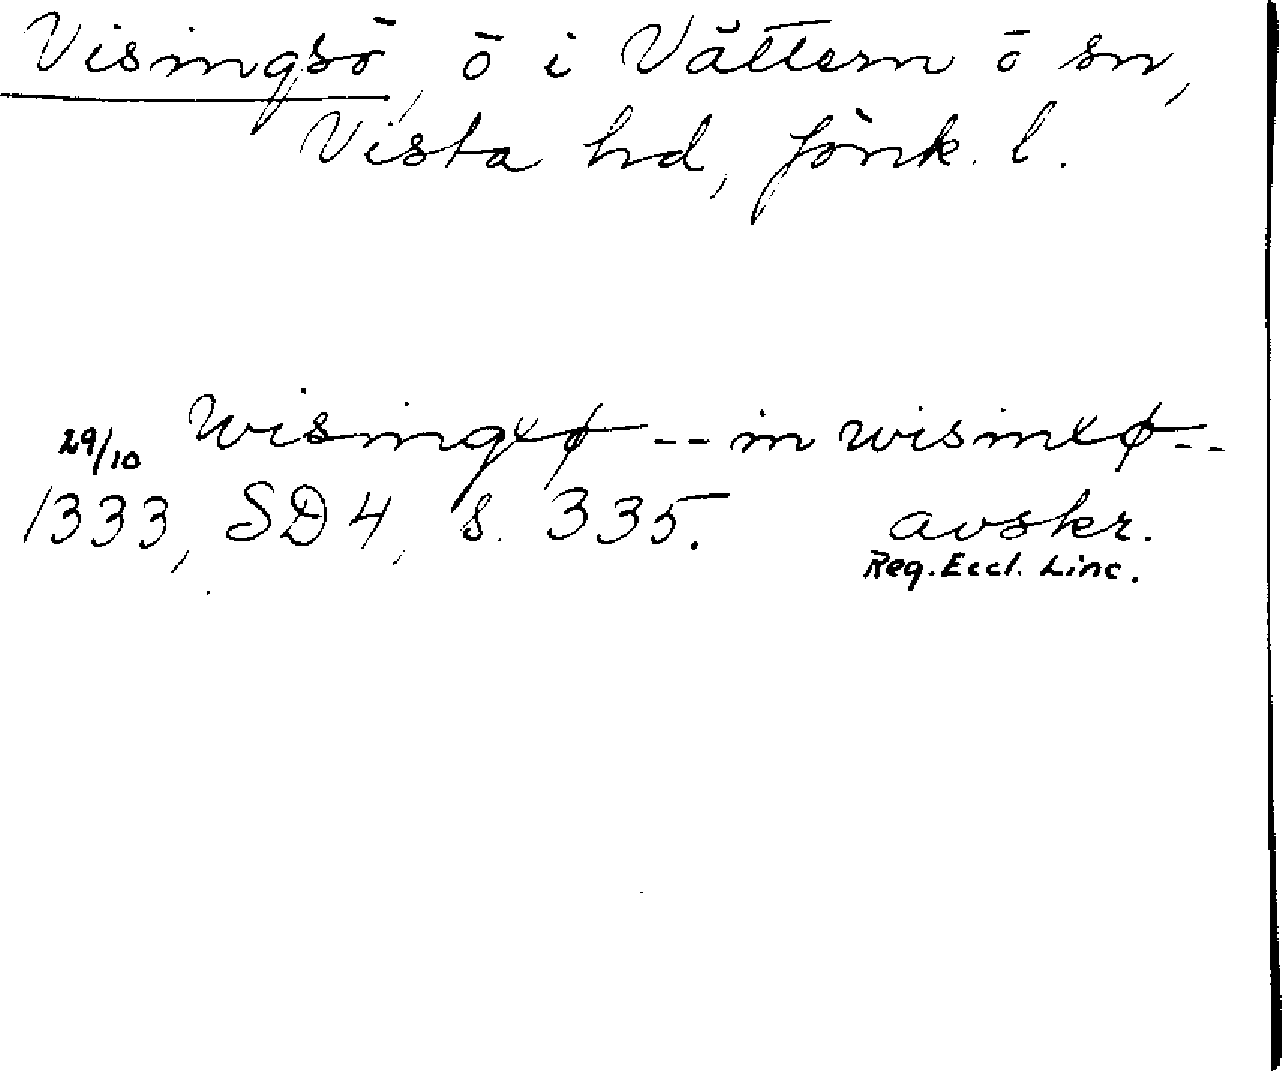 Visingsö, ö i Vättern ö sn,
Vista hd, Jönk. l.
29/10 Wisingxø -- in wisinxø --
1333, SD 4, s. 335. avskr.
Reg. Eccl. Linc.